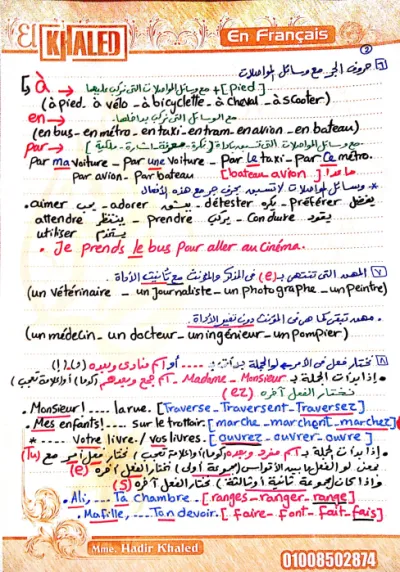 El KHALED
En Français
②
٦ حروف الجر مع وسائل المواصلات
à → مع وسائل المواصلات التى نركب عليها + [pied]
(à pied - à vélo - à bicyclette - à cheval - à scooter)
en → مع الوسائل التى نركب بداخلها
(en bus - en métro - en taxi - en tram - en avion - en bateau)
par → مع وسائل المواصلات التى تسبق بأداة
par ma voiture - par une voiture - par le taxi - par ce métro.
par avion - par bateau [bateau - avion] ماعدا
* وسائل المواصلات لا تسبق بحرف جر مع هذه الأفعال
. aimer يحب - adorer يعشق - détester يكره - préférer يفضل
attendre ينتظر - prendre يركب - conduire يقود
utiliser يستخدم
. Je prends le bus pour aller au cinéma.
٧ المهن التى تنتهى بـ (e) فى المذكر والمؤنث مع تأنيث الأداة.
(un vétérinaire - un journaliste - un photographe - un peintre)
. مهن تبقى كما هى فى المؤنث دون تغيير الأداة.
(un médecin - un docteur - un ingénieur - un pompier)
٨ نختار فعل فى الأمر إذا الجملة بدأت بـ .... أو اسم منادى وبعده (و) (!)
. إذا بدأت الجملة بـ Madame - Monsieur - اسم جمع وبعدهم (كوما) أو (علامة تعجب)
نختار الفعل آخره (ez)
. Monsieur! .... la rue. [Traverse - Traversent - Traversez]
. Mes enfants! .... sur le trottoir [marche - marchent - marchez]
* .... votre livre. / vos livres. [ouvrez - ouvrer - ouvre]
. إذا بدأت الجملة بـ اسم مفرد وبعده (كوما) أو (علامة تعجب) نختار فعل أمر مع (Tu)
بمعنى لو الفعل ما بين الأقواس (مجموعة أولى) اختار الفعل آخره (e)
وإذا كان (مجموعة ثانية أو ثالثة) نختار الفعل آخره (s)
. Ali, ... Ta chambre. [ranges - ranger - range]
. Ma fille, .... Ton devoir. [faire - font - fait - fais]
Mme. Hadir Khaled
01008502874